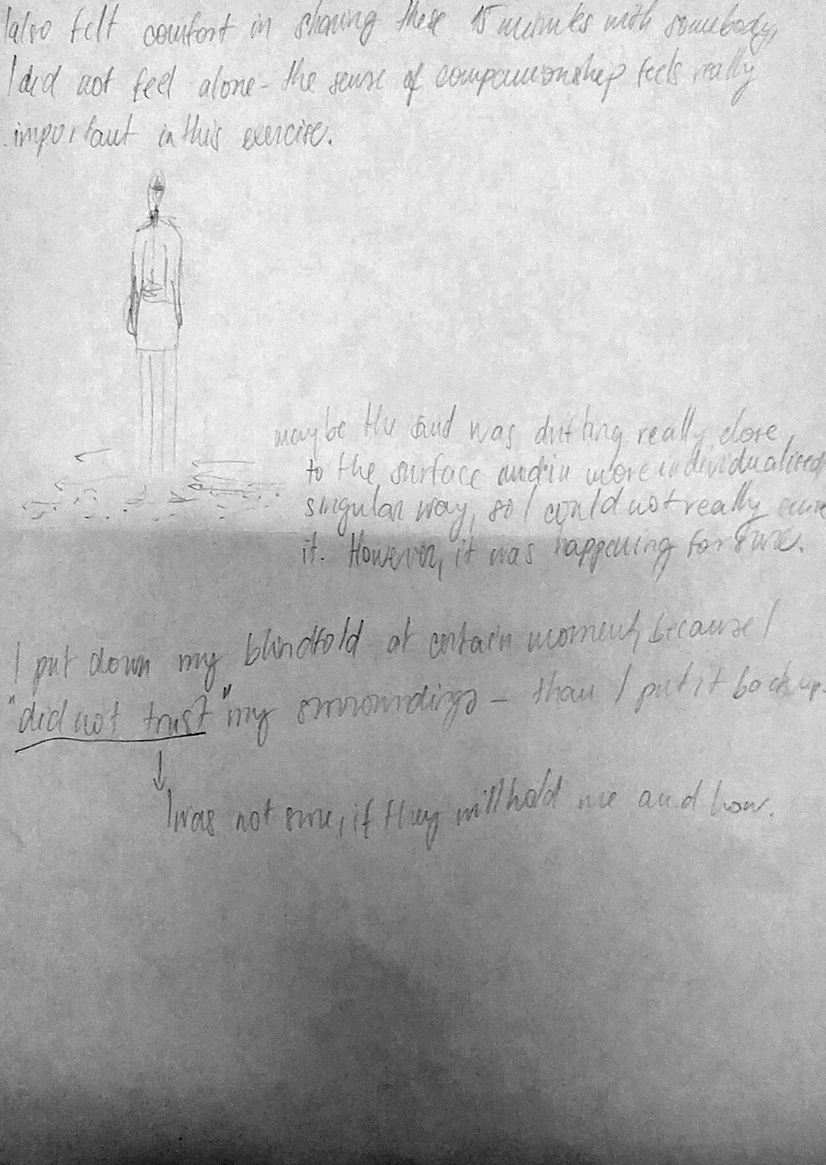 I also felt comfort in sharing these 15 minutes with somebody,
I did not feel alone - the sense of companionship feels really
important in this exercise.
maybe the sand was drifting really close
to the surface and in more individualised
singular way, so I could not really
it. However, it was happening for sure.
I put down my blindfold at certain moments, because I
"did not trust" my surroundings - than I put it back up.
↓
I was not sure, if they will hold me and how.